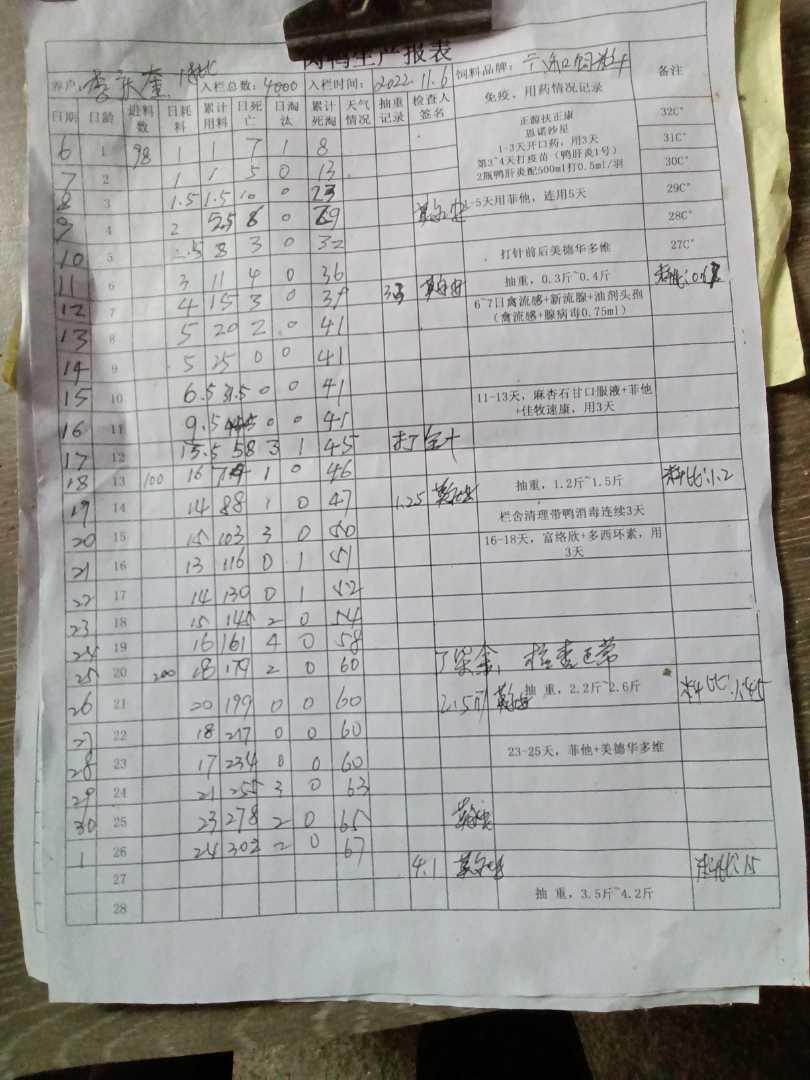 肉鸭生产报表
养户: 入栏总数: 4000 入栏时间: 2022.11.6 饲料品牌:
日期 日龄 进料数 日耗料 累计用料 日死亡 日淘汰 累计死淘 天气情况 抽重记录 检查人签名 免疫，用药情况记录 备注
6 1 98 1 1 7 1 8 正源扶正康 32C°
恩诺沙星
1-3天开口药，用3天 31C°
7 2 1 1 5 0 13 第3~4天打疫苗（鸭肝炎1号）
2瓶鸭肝炎配500ml打0.5ml/羽 30C°
8 3 1.5 1.5 10 0 23
9 4 2 0 -5天用菲他，连用5天 29C°
28C°
10 5 8 3 0 32 打针前后美德华多维 27C°
11 6 3 11 4 0 36 抽重，0.3斤~0.4斤
12 7 4 15 3 0 39 6~7日禽流感+新流腺+油剂头孢
（禽流感+腺病毒0.75ml）
13 8 5 20 2 0 41
14 9 5 25 0 0 41
15 10 6.5 31.5 0 0 41 11-13天，麻杏石甘口服液+菲他
+佳牧速康，用3天
16 11 9.5 0 0
17 12 58 3 1 45 打
18 13 100 16 74 1 0 46 抽重，1.2斤~1.5斤 料比:1.2
19 14 14 88 1 0 47 1.25
栏舍清理带鸭消毒连续3天
20 15 15 103 3 0 50 16-18天，富络欣+多西环素，用
3天
21 16 13 116 0 1 51
22 17 14 130 0 1 52
23 18 15 145 2 0 54
24 19 16 161 4 0 58
25 20 200 18 179 2 0 60 检查正常
26 21 20 199 0 0 60 2.5斤 抽 重，2.2斤~2.6斤 料比:1.45
27 22 18 217 0 0 60
28 23 17 234 0 0 60 23-25天，菲他+美德华多维
29 24 21 255 3 0 63
30 25 23 278 2 0 65
1 26 24 302 2 0 67
27 4.1
28 抽 重，3.5斤~4.2斤